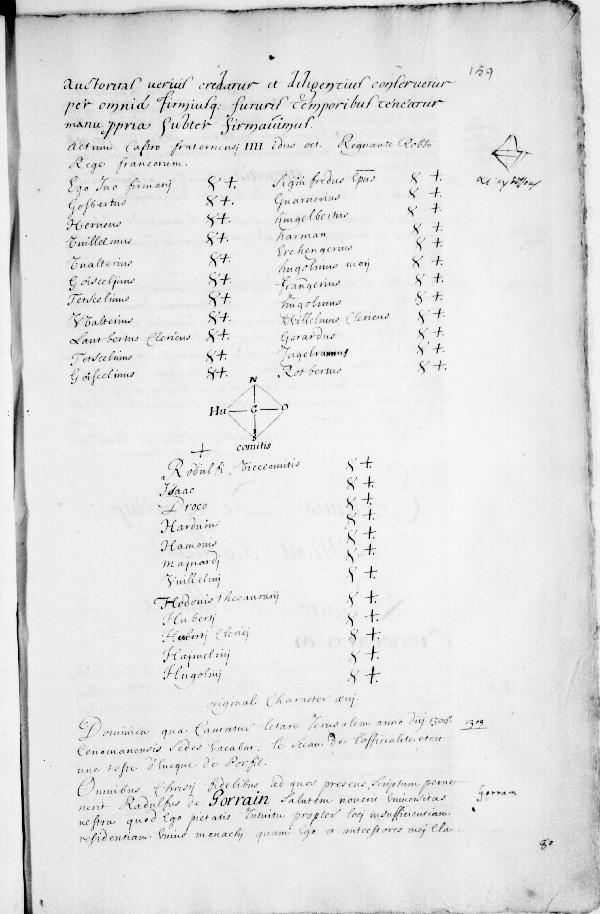 159
auctoritas verius credatur et diligentius conservetur
per omnia firmiusq; futuris temporibus teneatur
manu ppria subter firmavimus.
Actum Castro fraternensi IIII idus oct. Regnante Robto
Rege francorum.
Ego Ivo firmavi S +. Sigin fredus Eps S +.
Gosbertus S +. Guarnerius S +.
Herveus S +. hugelbertus S +.
Vuillelmus S +. harman S +.
Erchengerius S +.
Vualterius S +. hugolinus S +.
Goiscelinus S +. frangerius S +.
Tetscelinus S +. hugolinus S +.
Walterius S +. Willelmus Clericus S +.
Lantbertus Clericus S +. Gerardus S +.
Tetscelinus S +. S +.
Goiscelinus S +. Rotbertus S +.
N
Hu G O
S
+ comitis
Rodulfi Vicecomitis S +.
Isaac S +.
Droco S +.
Harduin S +.
Hamonis S +.
Mainardi S +.
Vuillelmi S +.
Hodonis thesaurarii S +.
Huberti S +.
Huberti Clerici S +.
Hamelini S +.
Hugolini S +.
original Character
Dominica qua Cantatur letare Jerusalem anno dni 1309. 1309
Cenomanensis Sedes Vacabat. le Sceau de l'officialite
une teste d'Eveque de Porfil.
Omnibus Christi fidelibus ad quos presens Scriptum perve
nerit Radulfus de Gorrain Salutem noverit Universitas Gorram
vestra quod Ego pietatis Intuitu propter loci insufficientiam
residentiam Unius monachi quam Ego et antecessores mei
80